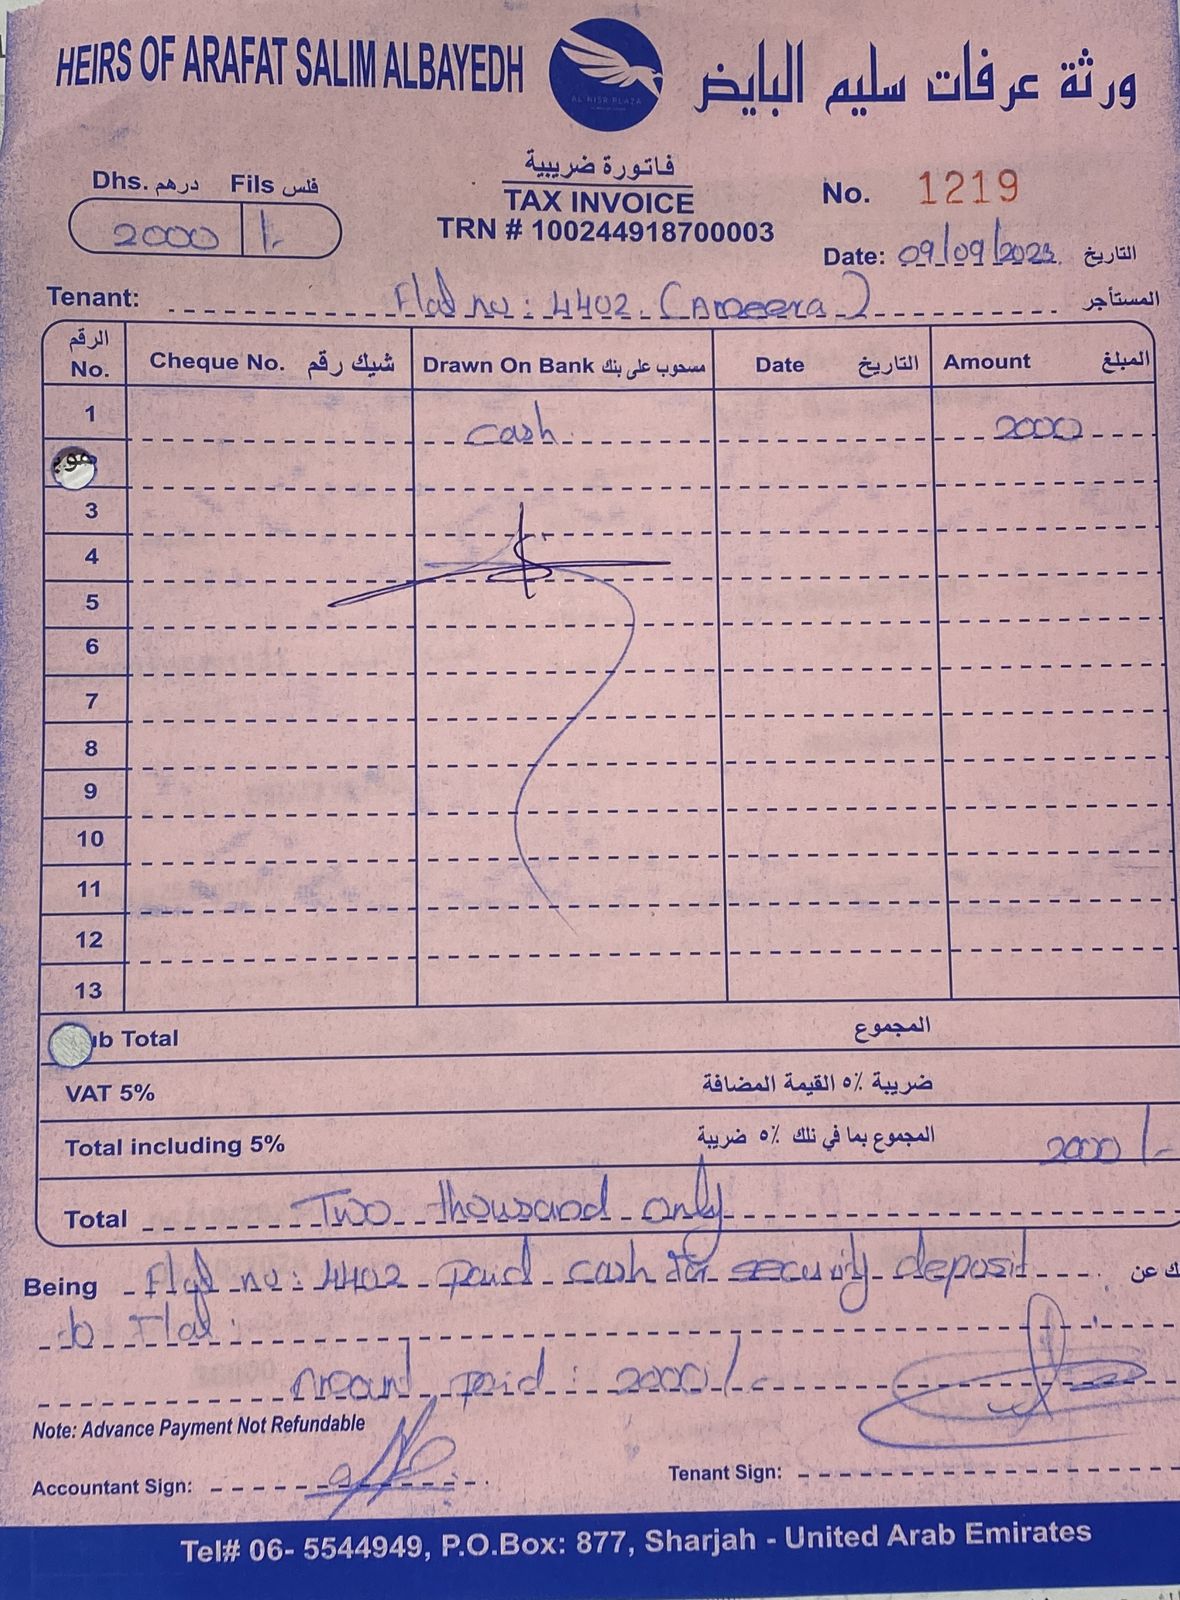 HEIRS OF ARAFAT SALIM ALBAYEDH
ورثة عرفات سليم البايض
AL NISR PLAZA
فاتورة ضريبية
TAX INVOICE
TRN # 100244918700003
Dhs. درهم Fils فلس
2000 /-
No. 1219
Date: 09/09/2023 التاريخ
Tenant: Flat no: 4402 (Ameera) المستأجر
الرقم No. Cheque No. شيك رقم Drawn On Bank مسحوب على بنك Date التاريخ Amount المبلغ
1 cash 2000
3
4
5
6
7
8
9
10
11
12
13
ub Total المجموع
VAT 5% ضريبة ٥٪ القيمة المضافة
Total including 5% المجموع بما في ذلك ٥٪ ضريبة 2000/-
Total Two thousand only
Being Flat no: 4402 paid cash for security deposit ك عن
to Flat.
Amount paid: 2000/-
Note: Advance Payment Not Refundable
Accountant Sign: Tenant Sign:
Tel# 06- 5544949, P.O.Box: 877, Sharjah - United Arab Emirates